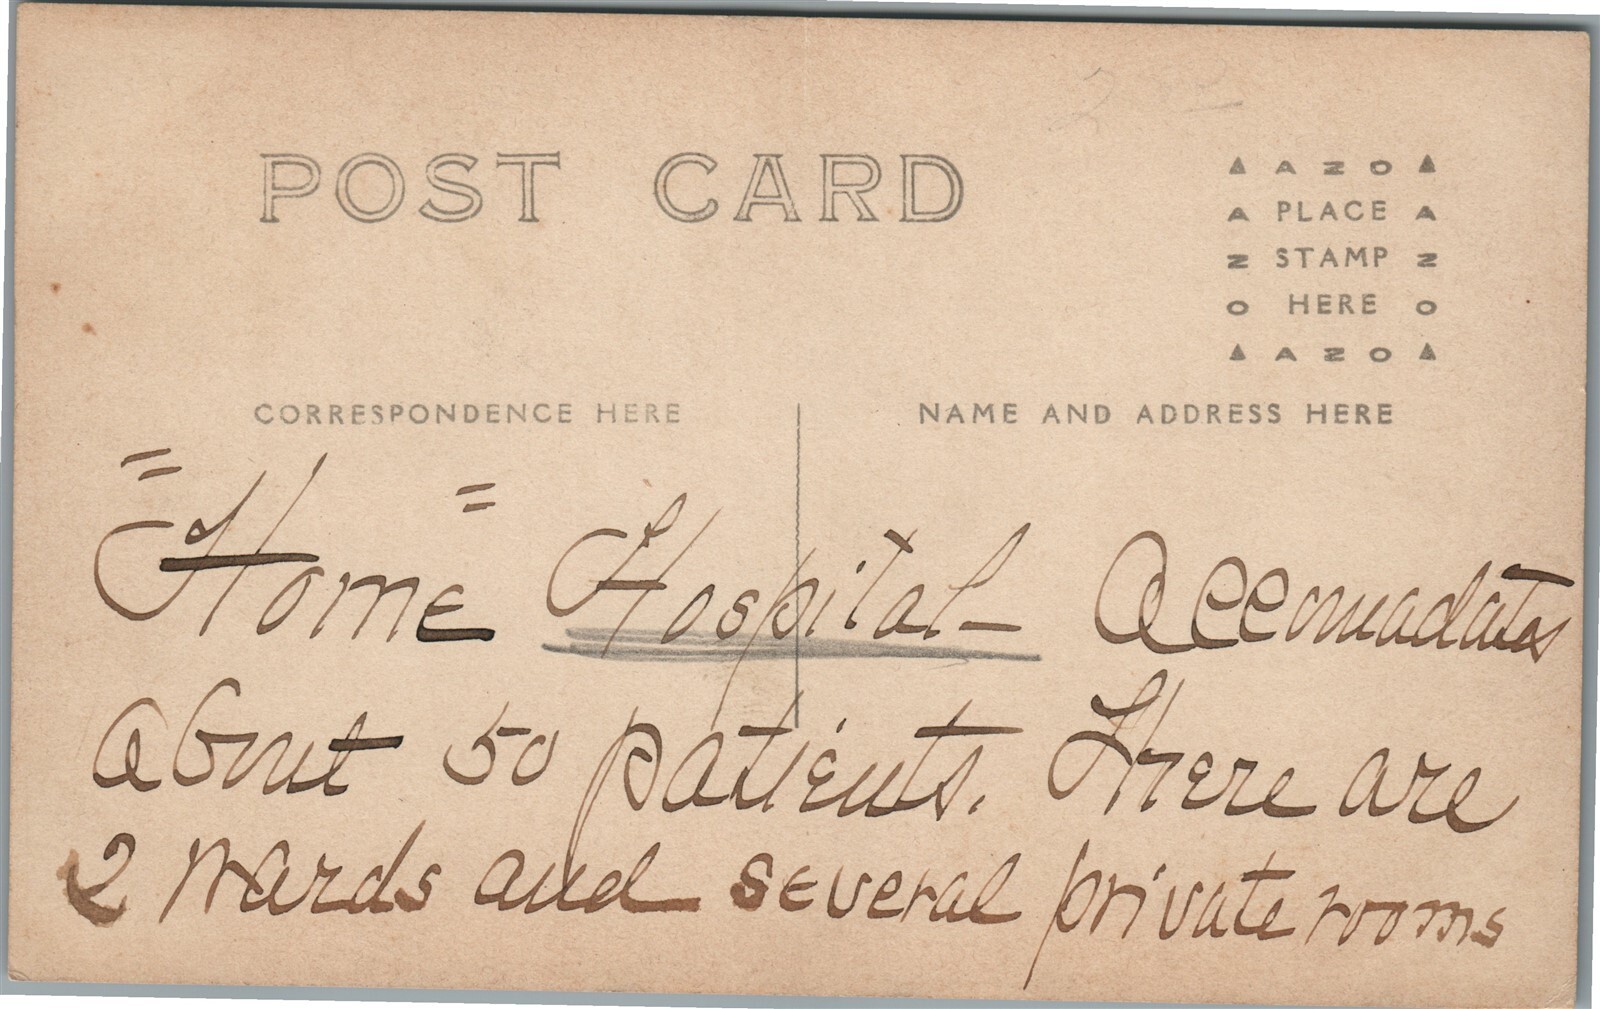 POST CARD
▲ A Z O ▲
A PLACE A
Z STAMP Z
O HERE O
▲ A Z O ▲
CORRESPONDENCE HERE
NAME AND ADDRESS HERE
"Home" Hospital - Accomadates
about 50 patients. There are
2 wards and several private rooms